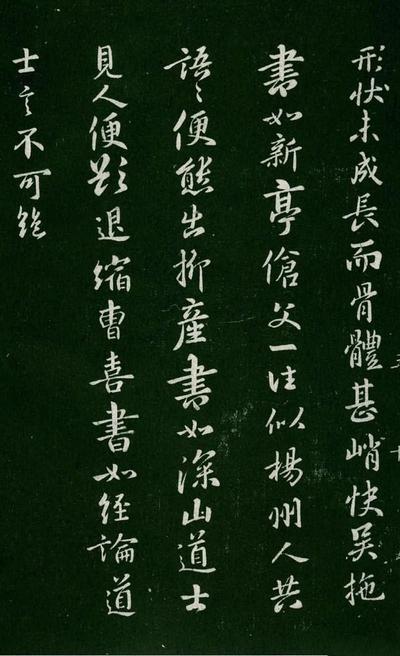 形狀未成長而骨體甚峭快吳拖
書如新亭傖父一往似楊州人共
語〻便態出柳產書如深山道士
見人便欲退縮曹喜書如經論道
士言不可絕